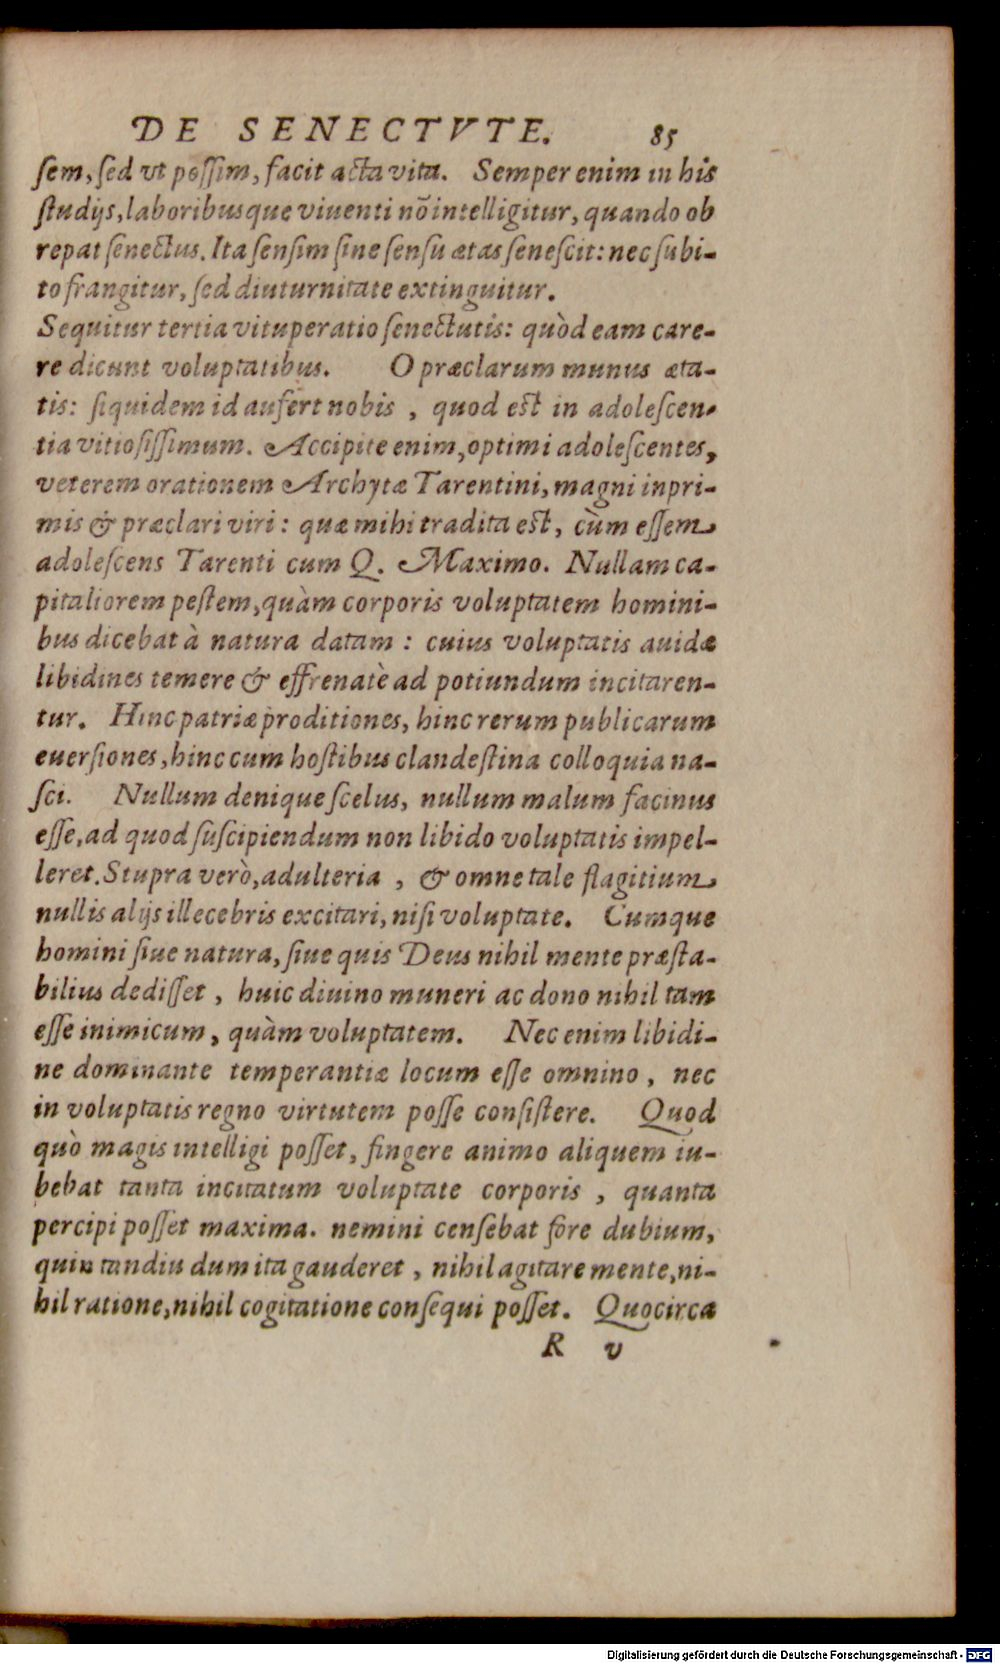 DE SENECTVTE. 85
sem, sed vt possim, facit acta vita. Semper enim in his
studijs, laboribusque viuenti nõ intelligitur, quando ob
repat senectus. Ita sensim sine sensu ætas senescit: nec subi-
to frangitur, sed diuturnitate extinguitur.
Sequitur tertia vituperatio senectutis: quòd eam care-
re dicunt voluptatibus. O præclarum munus æta-
tis: siquidem id aufert nobis, quod est in adolescen-
tia vitiosissimum. Accipite enim, optimi adolescentes,
veterem orationem Archytæ Tarentini, magni inpri-
mis & præclari viri: quæ mihi tradita est, cùm essem
adolescens Tarenti cum Q. Maximo. Nullam ca-
pitaliorem pestem, quàm corporis voluptatem homini-
bus dicebat à natura datam: cuius voluptatis auidæ
libidines temere & effrenatè ad potiundum incitaren-
tur. Hinc patriæ proditiones, hinc rerum publicarum
euersiones, hinc cum hostibus clandestina colloquia na-
sci. Nullum denique scelus, nullum malum facinus
esse, ad quod suscipiendum non libido voluptatis impel-
leret. Stupra verò, adulteria, & omne tale flagitium
nullis alijs illecebris excitari, nisi voluptate. Cumque
homini siue natura, siue quis Deus nihil mente præsta-
bilius dedisset, huic diuino muneri ac dono nihil tam
esse inimicum, quàm voluptatem. Nec enim libidi-
ne dominante temperantiæ locum esse omnino, nec
in voluptatis regno virtutem posse consistere. Quod
quò magis intelligi posset, fingere animo aliquem iu-
bebat tanta incitatum voluptate corporis, quanta
percipi posset maxima. nemini censebat fore dubium,
quin tandiu dum ita gauderet, nihil agitare mente, ni-
hil ratione, nihil cogitatione consequi posset. Quocirca
R v
Digitalisierung gefördert durch die Deutsche Forschungsgemeinschaft - DFG